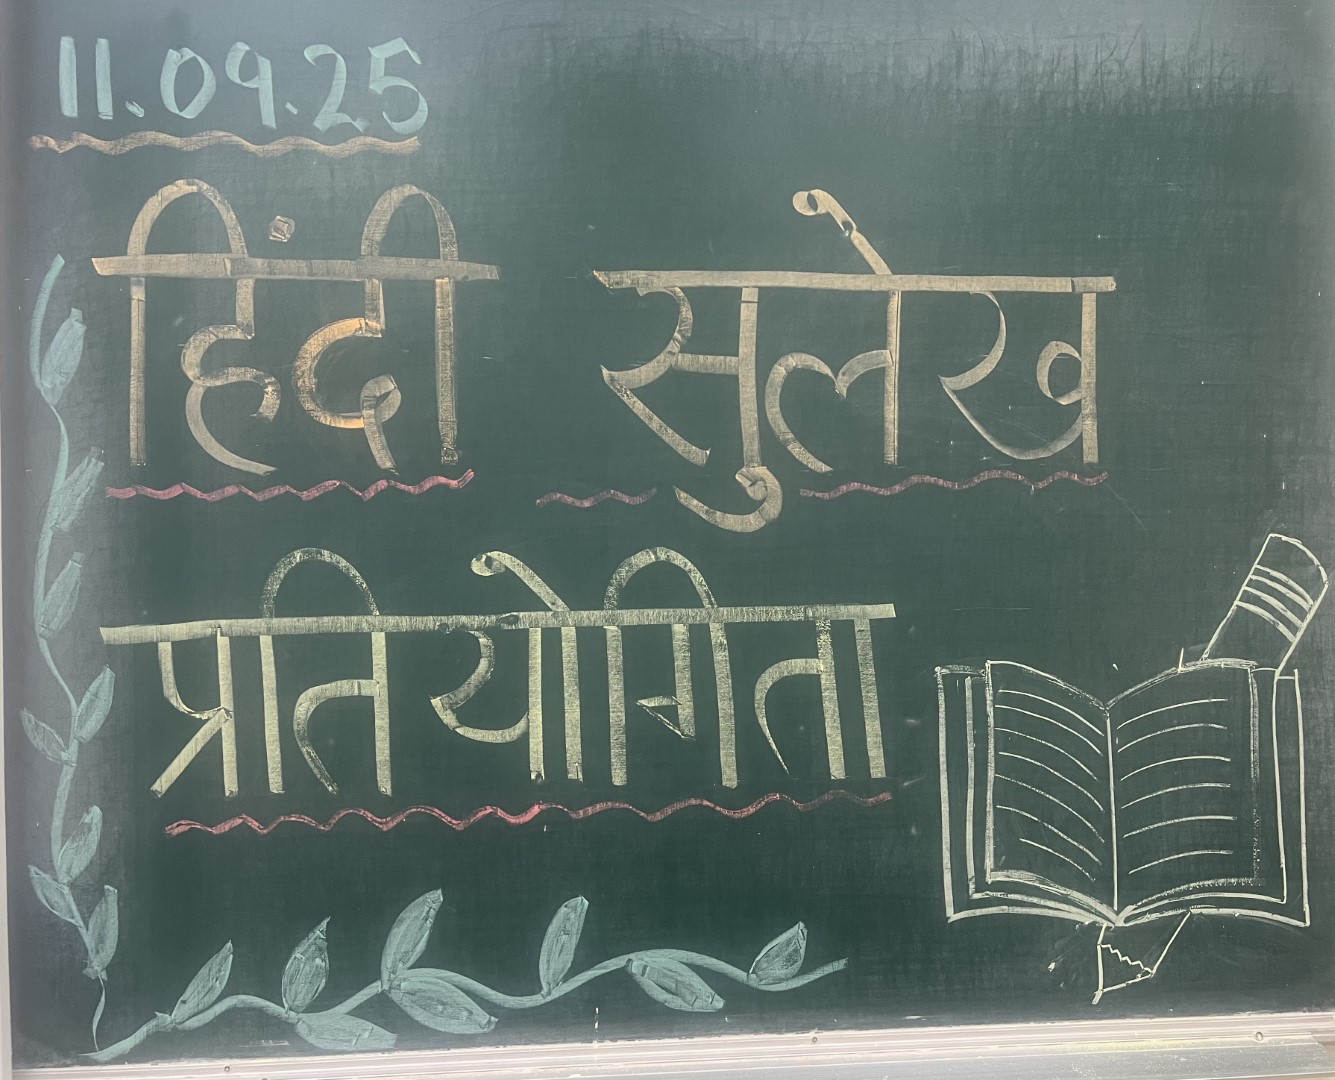 11.09.25
हिंदी सुलेख
प्रतियोगिता